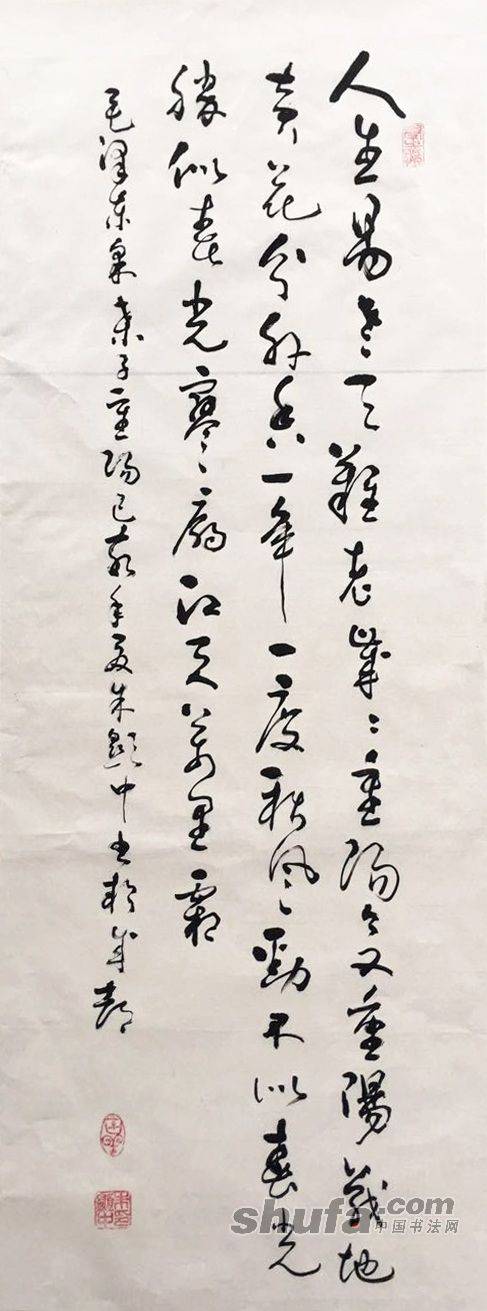 人生易老天難老歲〻重陽今又重陽戰地
黄花分外香一年一度秋風勁不似春光
勝似春光寥〻廓江天萬里霜
毛澤東采桑子重陽己亥年夏朱顯中書於成都
shufa.com
中国书法网